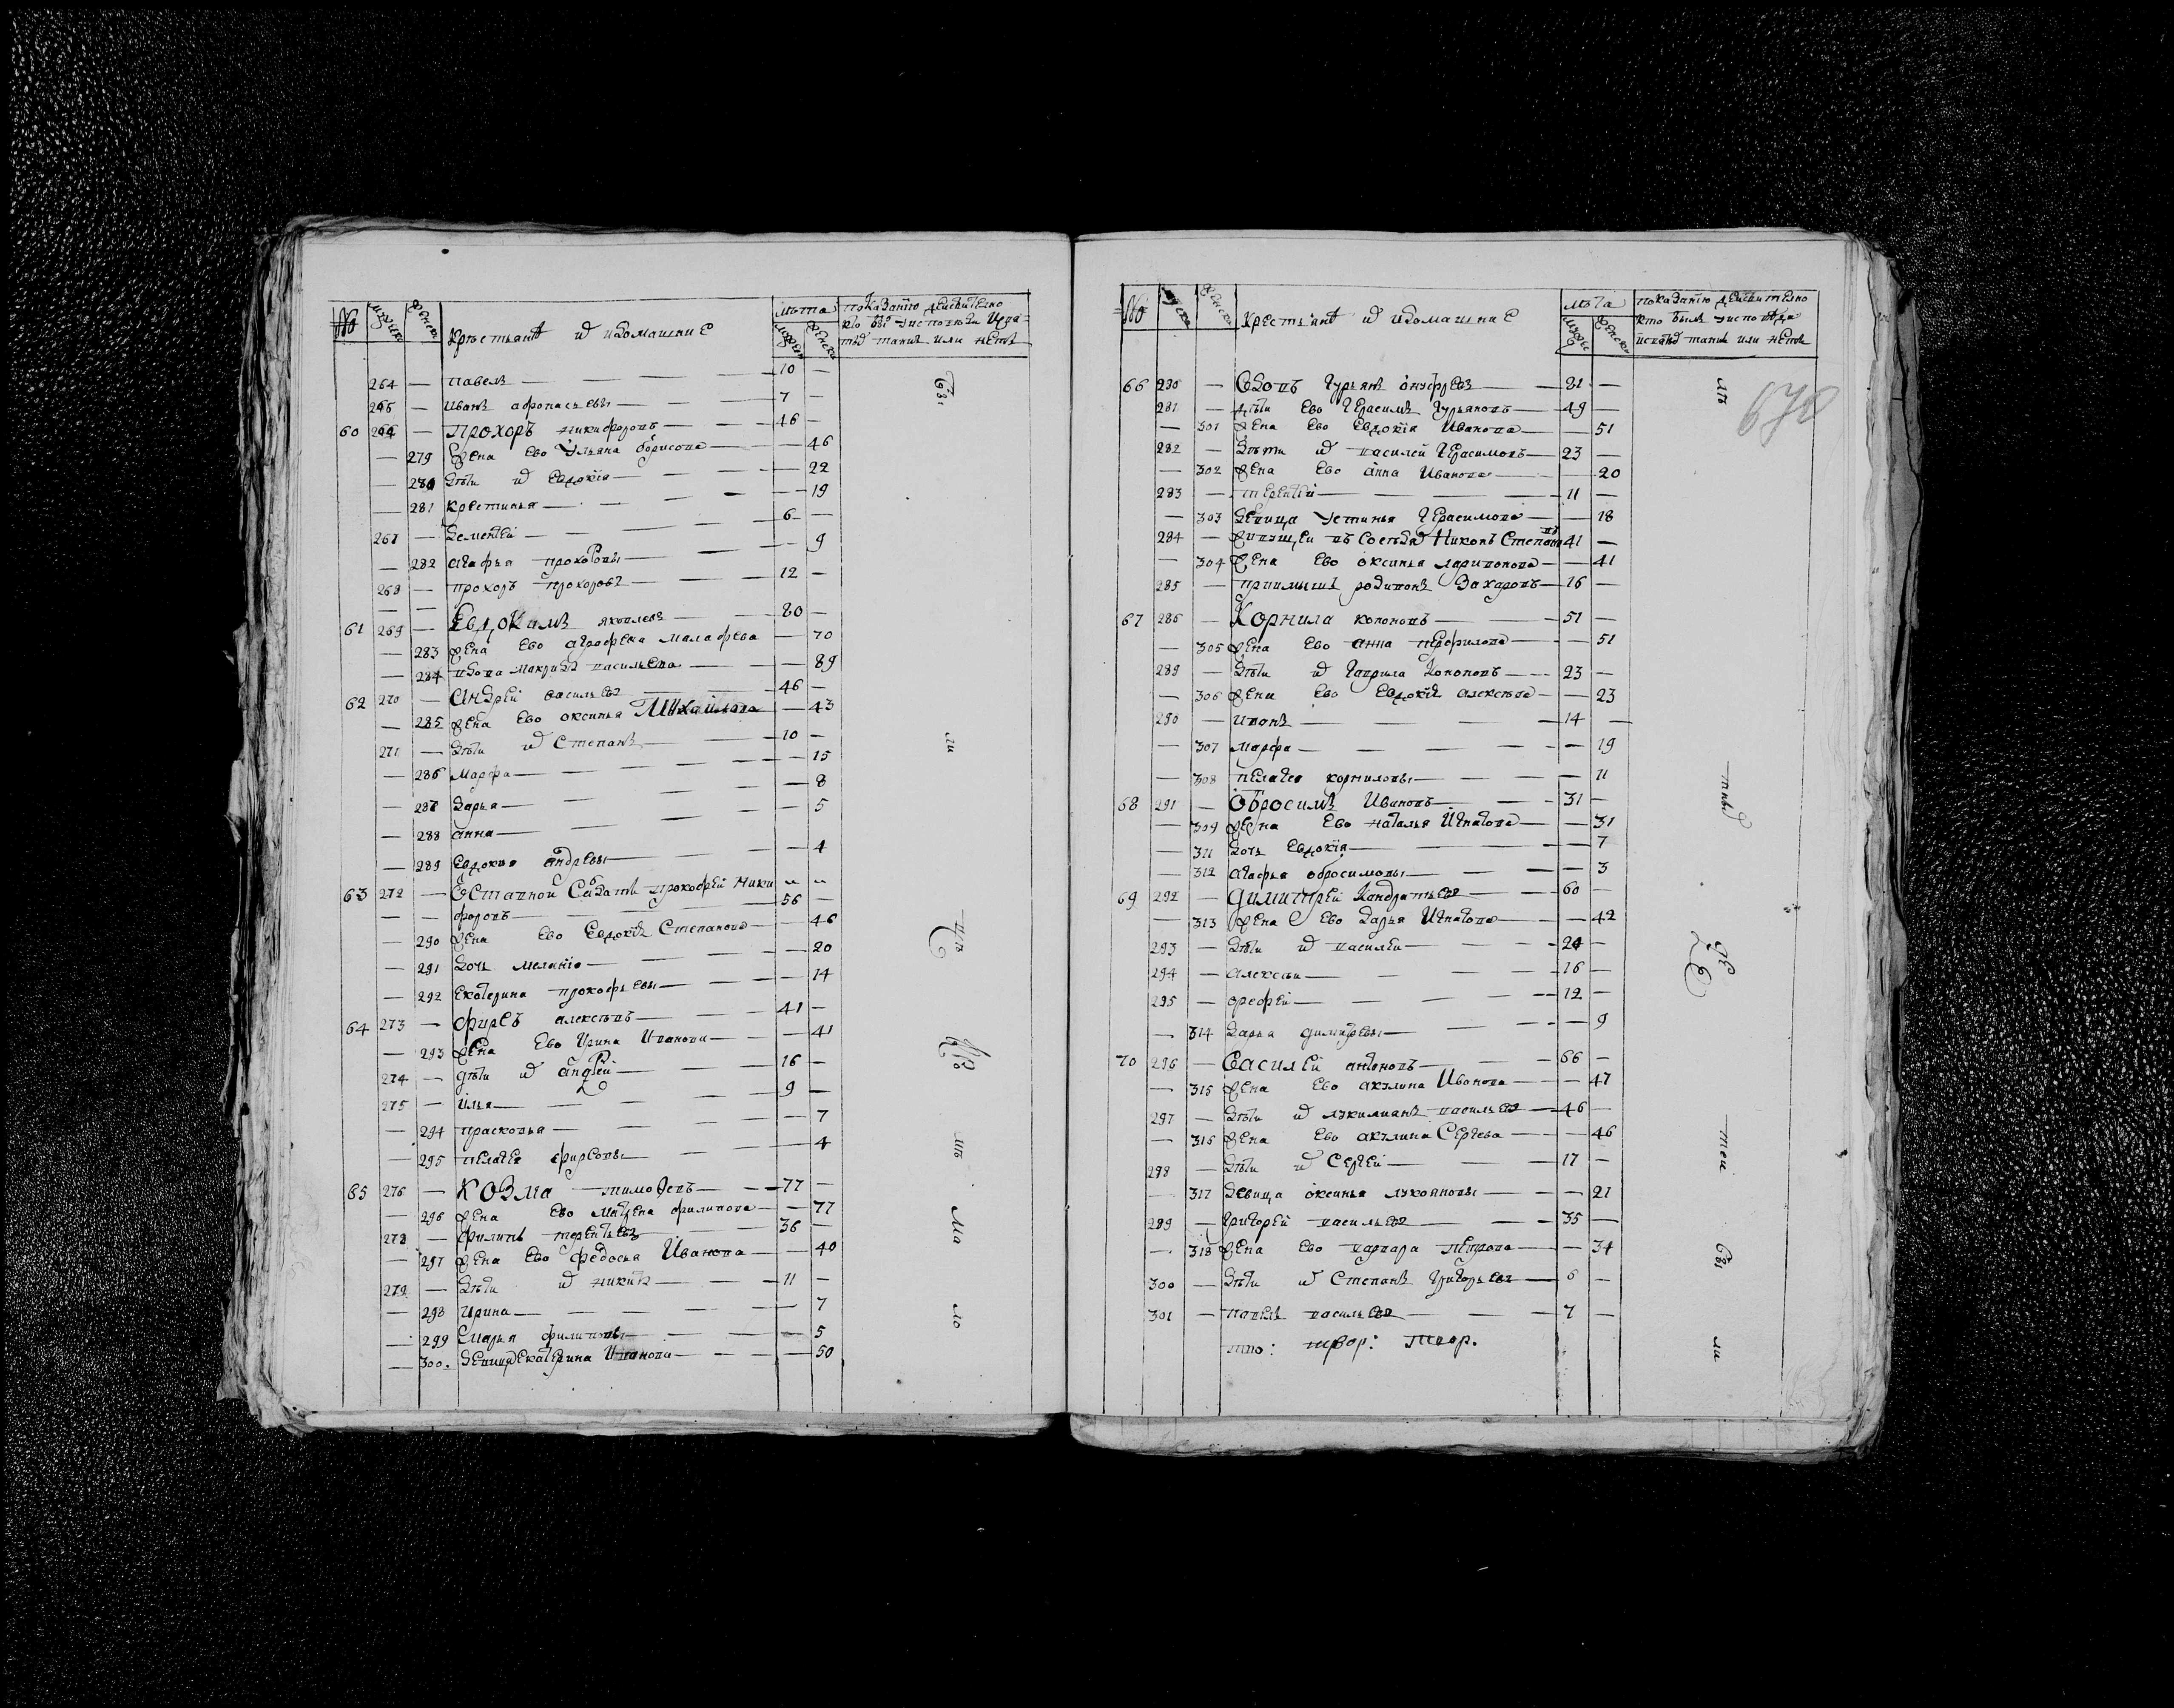 № мужска женска крестьянѣ и ихъ домашние лѣта мужеск женски показанїю действително
кто был у исповѣди и свя
тыхъ таинъ или нетъ
264 — павелъ — 10 —
265 — иванъ афонасьевы — 7 —
60 266 — Прохоръ никифоровъ — 46 —
— 279 жена ево Ульяна борисова — 46
— 280 дѣти ихъ Евдокїя — 22
— 281 крестинья — 19
267 — дементей — 6 —
— 282 агафья прохоровы — 9
268 — прохоръ прохоровъ — 12 —
61 269 — Евдокимъ яковлевъ — 80 —
— 283 жена ево агрофена малафева — 70
— 284 вдова макрида васильева — 89
62 270 — Андрей васильевъ — 46 —
— 285 жена ево оксинья Михаилова — 43
271 — дѣти ихъ Степанъ — 10 —
— 286 марфа — 15
— 287 дарья — 8
— 288 анна — 5
— 289 Евдокия андревы — 4
63 272 — Отставной Салдатъ прокофей ники
— — форовъ — 56 —
— 290 жена ево Евдокїя Степанова — 46
— 291 дочь меланїя — 20
— 292 Екатерина прокофьевы — 14
64 273 — фирсъ алексѣевъ — 41 —
— 293 жена ево Ирина Иванова — 41
274 — дѣти ихъ андрей — 16 —
275 — илья — 9 —
— 294 прасковья — 7
— 295 пелагея фирсовы — 4
65 276 — Козма тимофеевъ — 77 —
— 296 жена ево матрена филипова — 77
278 — филипъ терентьевъ — 36 —
— 297 жена ево федосья Иванова — 40
279 — дѣти ихъ никита — 11 —
— 298 ирина — 7
— 299 марья филиповы — 5
— 300 девица Екатерина Иванова — 50
№ мужска женски крестьянѣ и ихъ домашние лѣта мужес женски показанїю действително
кто былъ у исповѣди
и святыхъ таинъ или нетъ
66 280 — вдовъ гурьянъ онуфревъ — 81 —
281 — дѣти ево герасимъ гурьяновъ — 49 —
— 301 жена ево Евдокїя Иванова — 51
282 — дѣти ихъ василей герасимовъ — 23 —
— 302 жена ево анна Иванова — 20
283 — терентей — 11 —
— 303 девица устинья герасимова — 18
284 — живущей въ соседях Никонъ Степановъ 41 —
— 304 жена ево оксинья ларивонова — 41
285 — приимышъ родивонъ Захаровъ — 16 —
67 286 — Корнила кононовъ — 51 —
— 305 жена ево анна перфилова — 51
289 — дѣти ихъ гаврила Кононовъ — 23 —
— 306 жена ево Евдокїя алексѣева — 23
290 — иванъ — 14 —
— 307 марфа — 19
— 308 пелагея корниловы — 11
68 291 — Обросимъ Ивановъ — 31 —
— 309 жена ево наталья Игнатова — 31
— 311 дочь Евдокїя — 7
— 312 агафья обросимовы — 3
69 292 — Димитрей Кондратьевъ — 60 —
— 313 жена ево дарья Игнатова — 42
293 — дѣти ихъ василей — 24 —
294 — алексѣи — 16 —
295 — ерефей — 12 —
— 314 дарья димитревы — 9
70 296 — Василей антоновъ — 66 —
— 315 жена ево акулина Иванова — 47
297 — дѣти ихъ лукиянъ васильевъ — 46 —
— 316 жена ево акулина Сергева — 46
298 — дѣти ихъ Сергей — 17 —
— 317 девица оксинья лукояновы — 21
299 — григорей васильевъ — 35 —
— 318 жена ево варвара петрова — 34
300 — дѣти ихъ Степанъ григорьевъ — 6 —
301 — павелъ васильевъ — 7 —